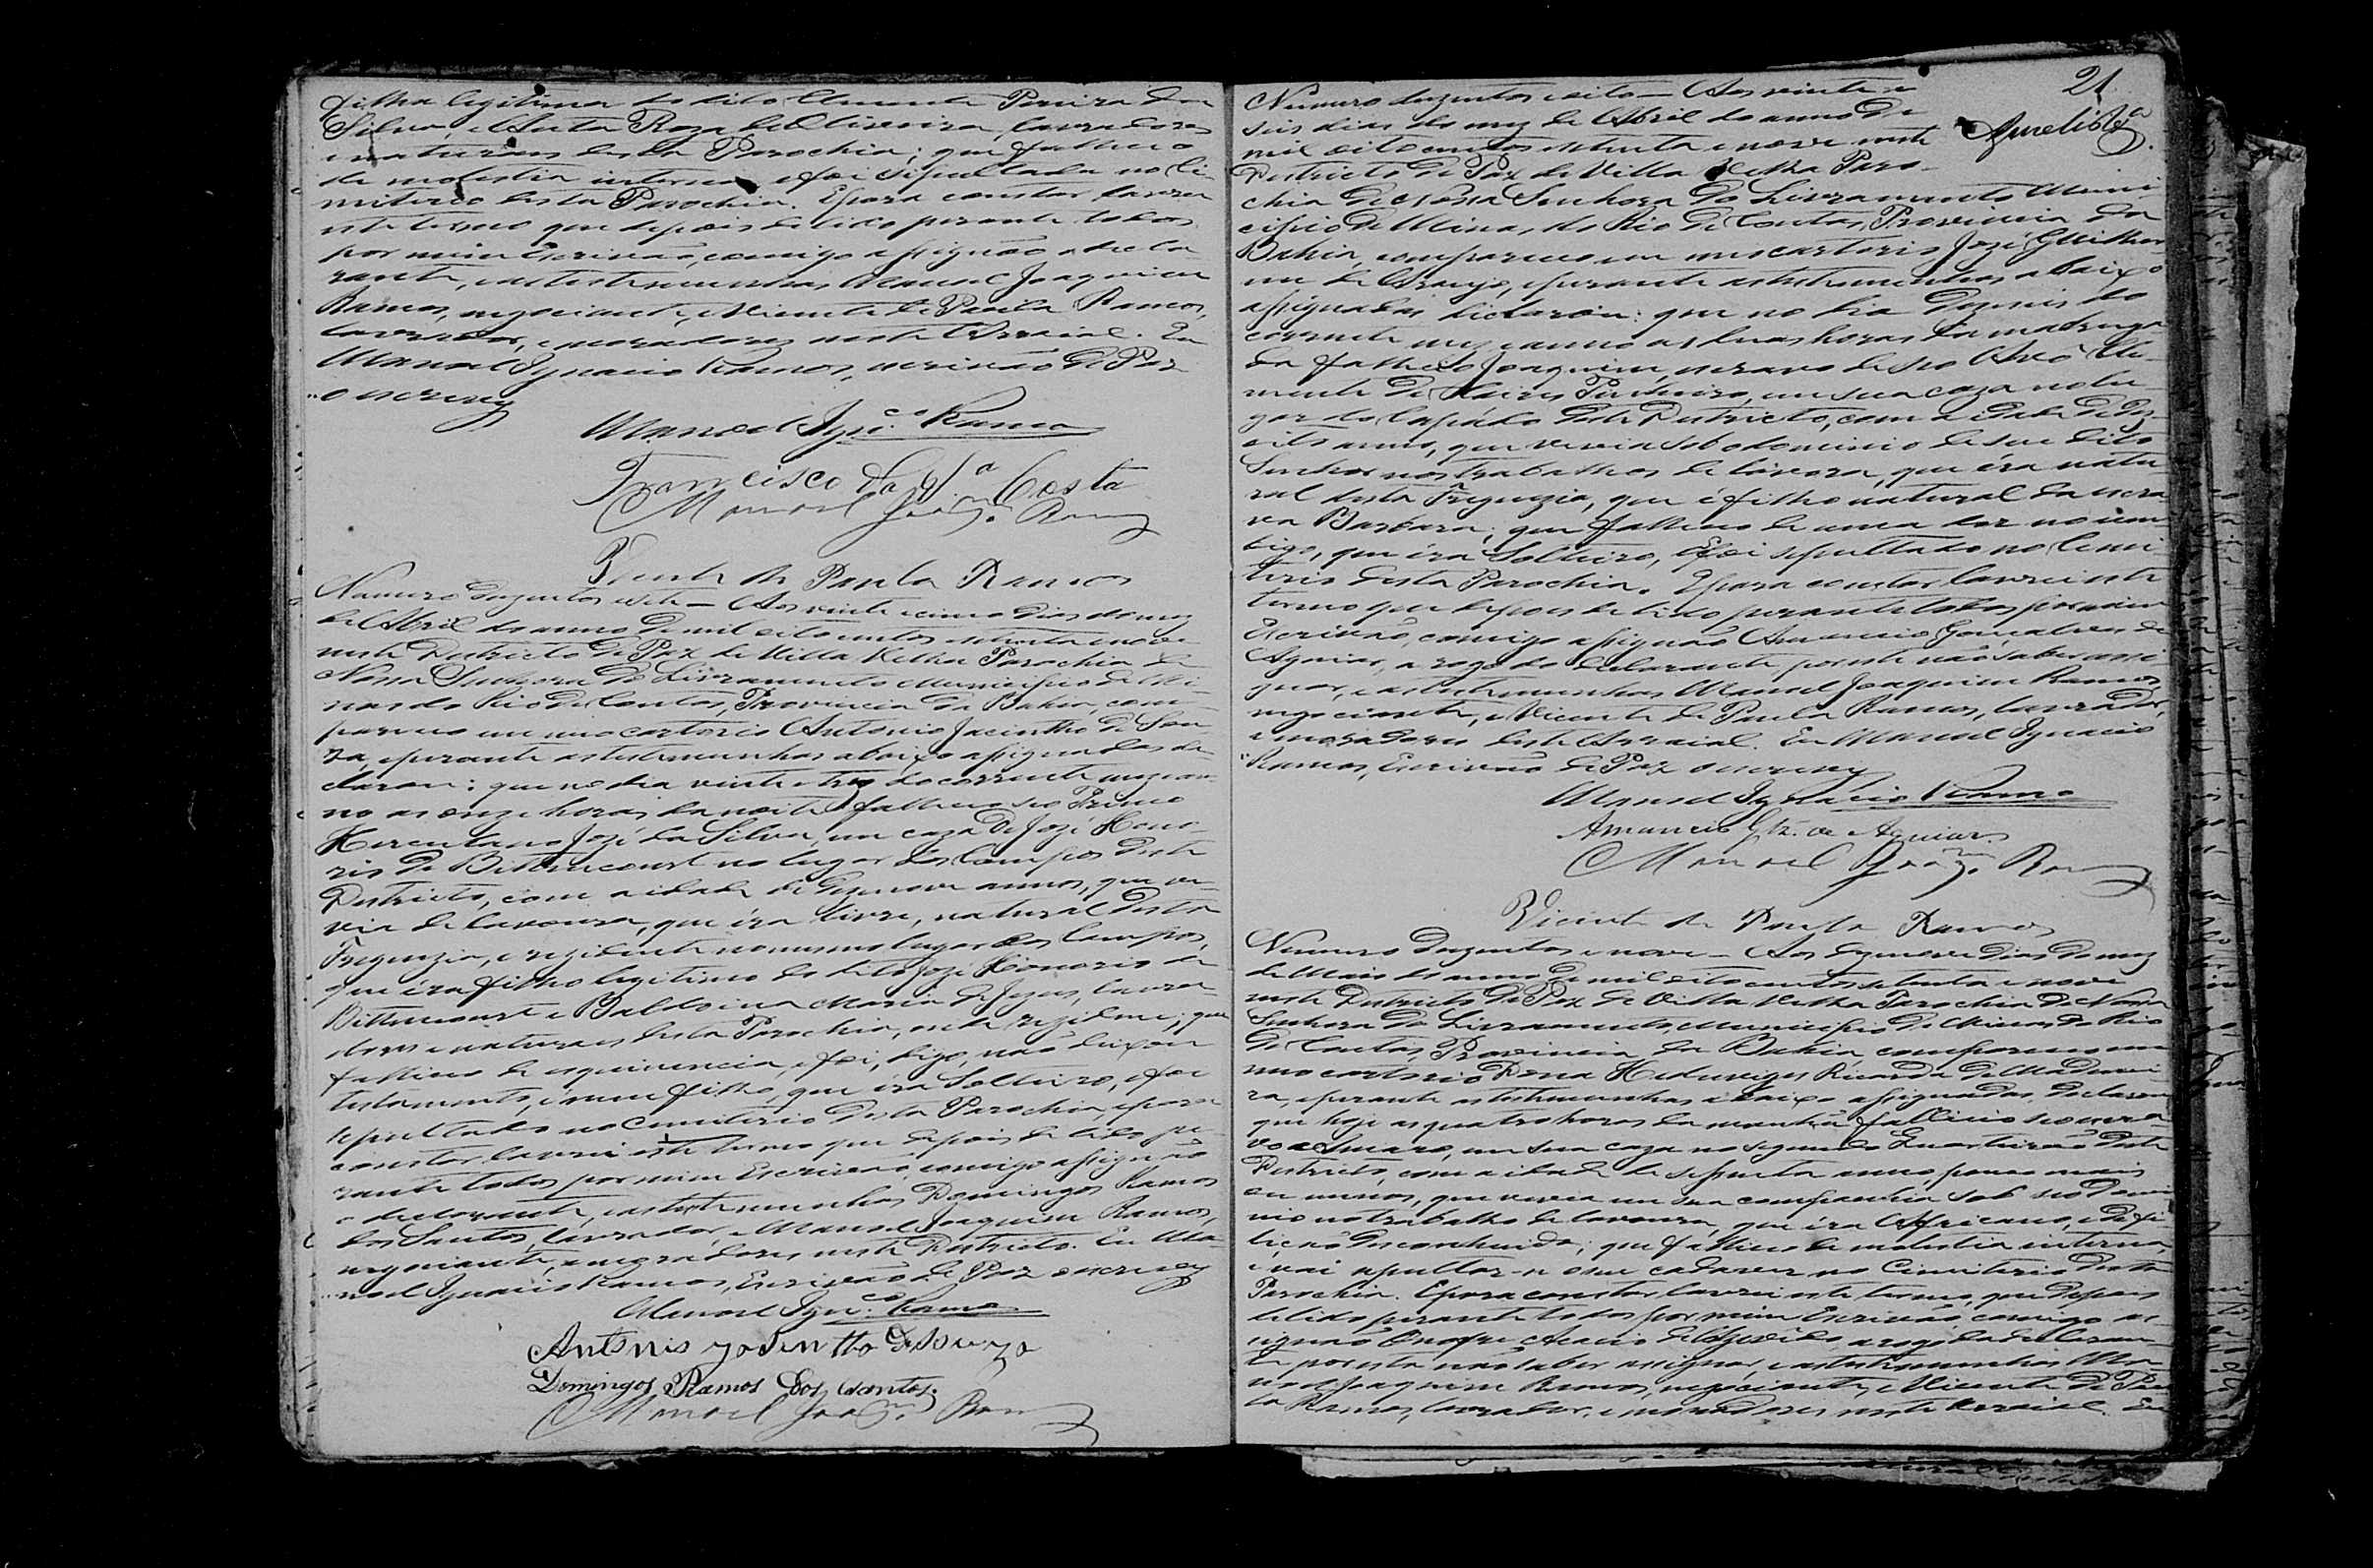 filha legitima do dito Clemente Pereira da
Silva, e Anta Roza de Oliveira, lavradores
e naturaes desta Parochia; que falleceo
de molestia interna e foi sepultada no Ci-
miterio desta Parochia. E para constar lavrei
este termo que depois de lido perante todos
por mim Escrivão, comigo assignão o decla
rante, e as testemunhas Manoel Joaquim
Ramos, negociante, e Vicente de Paula Ramos,
lavrador, e moradores neste Arraial. Eu
Manoel Ignacio Ramos, escrivão de Paz
o escrevy
Manoel Ign.co Ramos
Francisco da Costa
Manoel Joaq.m Ramos
Vicente de Paula Ramos
Numero duzentos e sete – Aos vinte e cinco dias do mez
de Abril do anno de mil oito centos e setenta e nove
neste Districto de Paz de Villa Velha Parochia de
Nossa Senhora do Livramento Municipio de Mi-
nas do Rio de Contas, Provincia da Bahia, com-
pareceo em meo cartorio Antonio Jacintho de Sou-
za, e perante as testemunhas abaixo assignadas de-
clarou: que no dia vinte e tres do corrente mez e an-
no as onze horas da noite falleceo seo Primo
Herculano Jozé da Silva, em caza de Jozé Hono-
rio de Bittencourt no lugar dos Campos deste
Districto, com a idade de dezenove annos, que vi-
via de lavoura, que éra livre, natural desta
Freguezia, e rezidente no mesmo lugar dos Campos,
que éra filho legitimo do dito Jozé Honorio de
Bittencourt e Baldoina Maria de Jezus, lavra-
dores e naturaes desta Parochia, onde rezidem; que
falleceo de esquinencia, e foi, digo, não deixou
testamento, e nem filho, que éra Solteiro, e foi
sepultado no Cimiterio desta Parochia, e para
constar lavrei este termo que depois de lido pe-
rante todos por mim Escrivão, comigo assignão
o declarante, e as testemunhas Domingos Ramos
dos Santos, lavrador, e Manoel Joaquim Ramos,
negociante, e moradores neste Districto. Eu Ma-
noel Ignacio Ramos, Escrivão de Paz o escrevy
Manoel Ign.co Ramos
Antonio de Souza
Domingos Ramos dos Santos.
Manoel Joaq.m Ramos
21
Numero duzentos e oito – Aos vinte e
seis dias do mez de Abril do anno de
mil oito centos e setenta e nove neste
Districto de Paz de Villa Velha Paro-
chia de Nossa Senhora do Livramento Muni-
cipio de Minas do Rio de Contas, Provincia da
Bahia, compareceo em meo cartorio Jozé Guilher-
me de Araujo, e perante as testemunhas abaixo
assignadas declarou: que no dia dezeseis do
corrente mez e anno as duas horas da madruga
da falleceo Joaquim, escravo de seo Avô Cle-
mente de em sua caza no lu-
gar do deste Districto, com a idade de dez-
oito annos, que vevia sob o dominio de seu dito
Senhor nos trabalhos de lavoura, que éra natu-
ral desta Freguezia, que é filho natural da escra-
va Barbara; que falleceo de uma dor no
que éra Solteiro, e foi sepultado no Cimi-
terio desta Parochia. E para constar lavrei este
termo que depois de lido perante todos por mim
Escrivão, comigo assignão Amancio Gonçalves de
Aguiar, a rogo do declarante, por este não saber assi-
gnar, e as testemunhas Manoel Joaquim Ramos,
negociante, e Vicente de Paula Ramos, lavrador,
e moradores deste Arraial. Eu Manoel Ignacio
Ramos, Escrivão de Paz o escrevy
Manoel Ignacio Ramos
Amancio Glz. de Aguiar
Manoel Joaq.m Ramos
Vicente de Paula Ramos
Numero duzentos e nove – Aos dezenove dias do mez
de Maio do anno de mil oito centos setenta e nove
neste Districto de Paz de Villa Velha Parochia de Nossa
Senhora do Livramento, Municipio de Minas do Rio
de Contas, Provincia da Bahia, compareceo em
meo cartorio Dona Ricarda de Madurei-
ra, e perante as testemunhas abaixo assignadas declarou
que hoje as quatro horas da manhã falleceo seo escra
vo em sua caza no segundo Quarteirão deste
Districto, com a idade de sessenta annos, pouco mais
ou menos, que vevia em sua companhia sob seo domi
nio no trabalho de lavoura, que éra Africano, e de fi
liação desconhecida; que falleceo de molestia interna,
e vai sepultar-se o seu cadaver no Cimiterio desta
Parochia. E para constar lavrei este termo, que depois
de lido perante todos por mim Escrivão, comigo as-
signão a rogo da declaran
te por esta não saber assignar, e as testemunhas Ma-
noel Joaquim Ramos, negociante, e Vicente de Pau
la Ramos, lavrador, e moradores neste Arraial. Eu